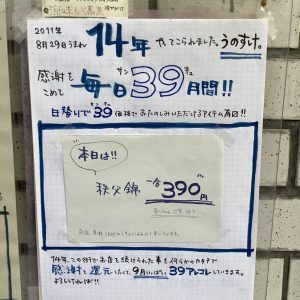 2011年
8月29日うまれ
14年 やってこられました。うのすけ。
感謝を
こめて
毎日39月間!!
サン キュ
日替りで39価格でおたのしみいただけるアイテム有り!!
サン キュ
本日は!!
秩父錦 一合 390円
14年、この街でお店を続けられた事を何らかのカタチで
感謝を還元したくて、9月いっぱい、39アレコレしていきます。
よろしければ!!